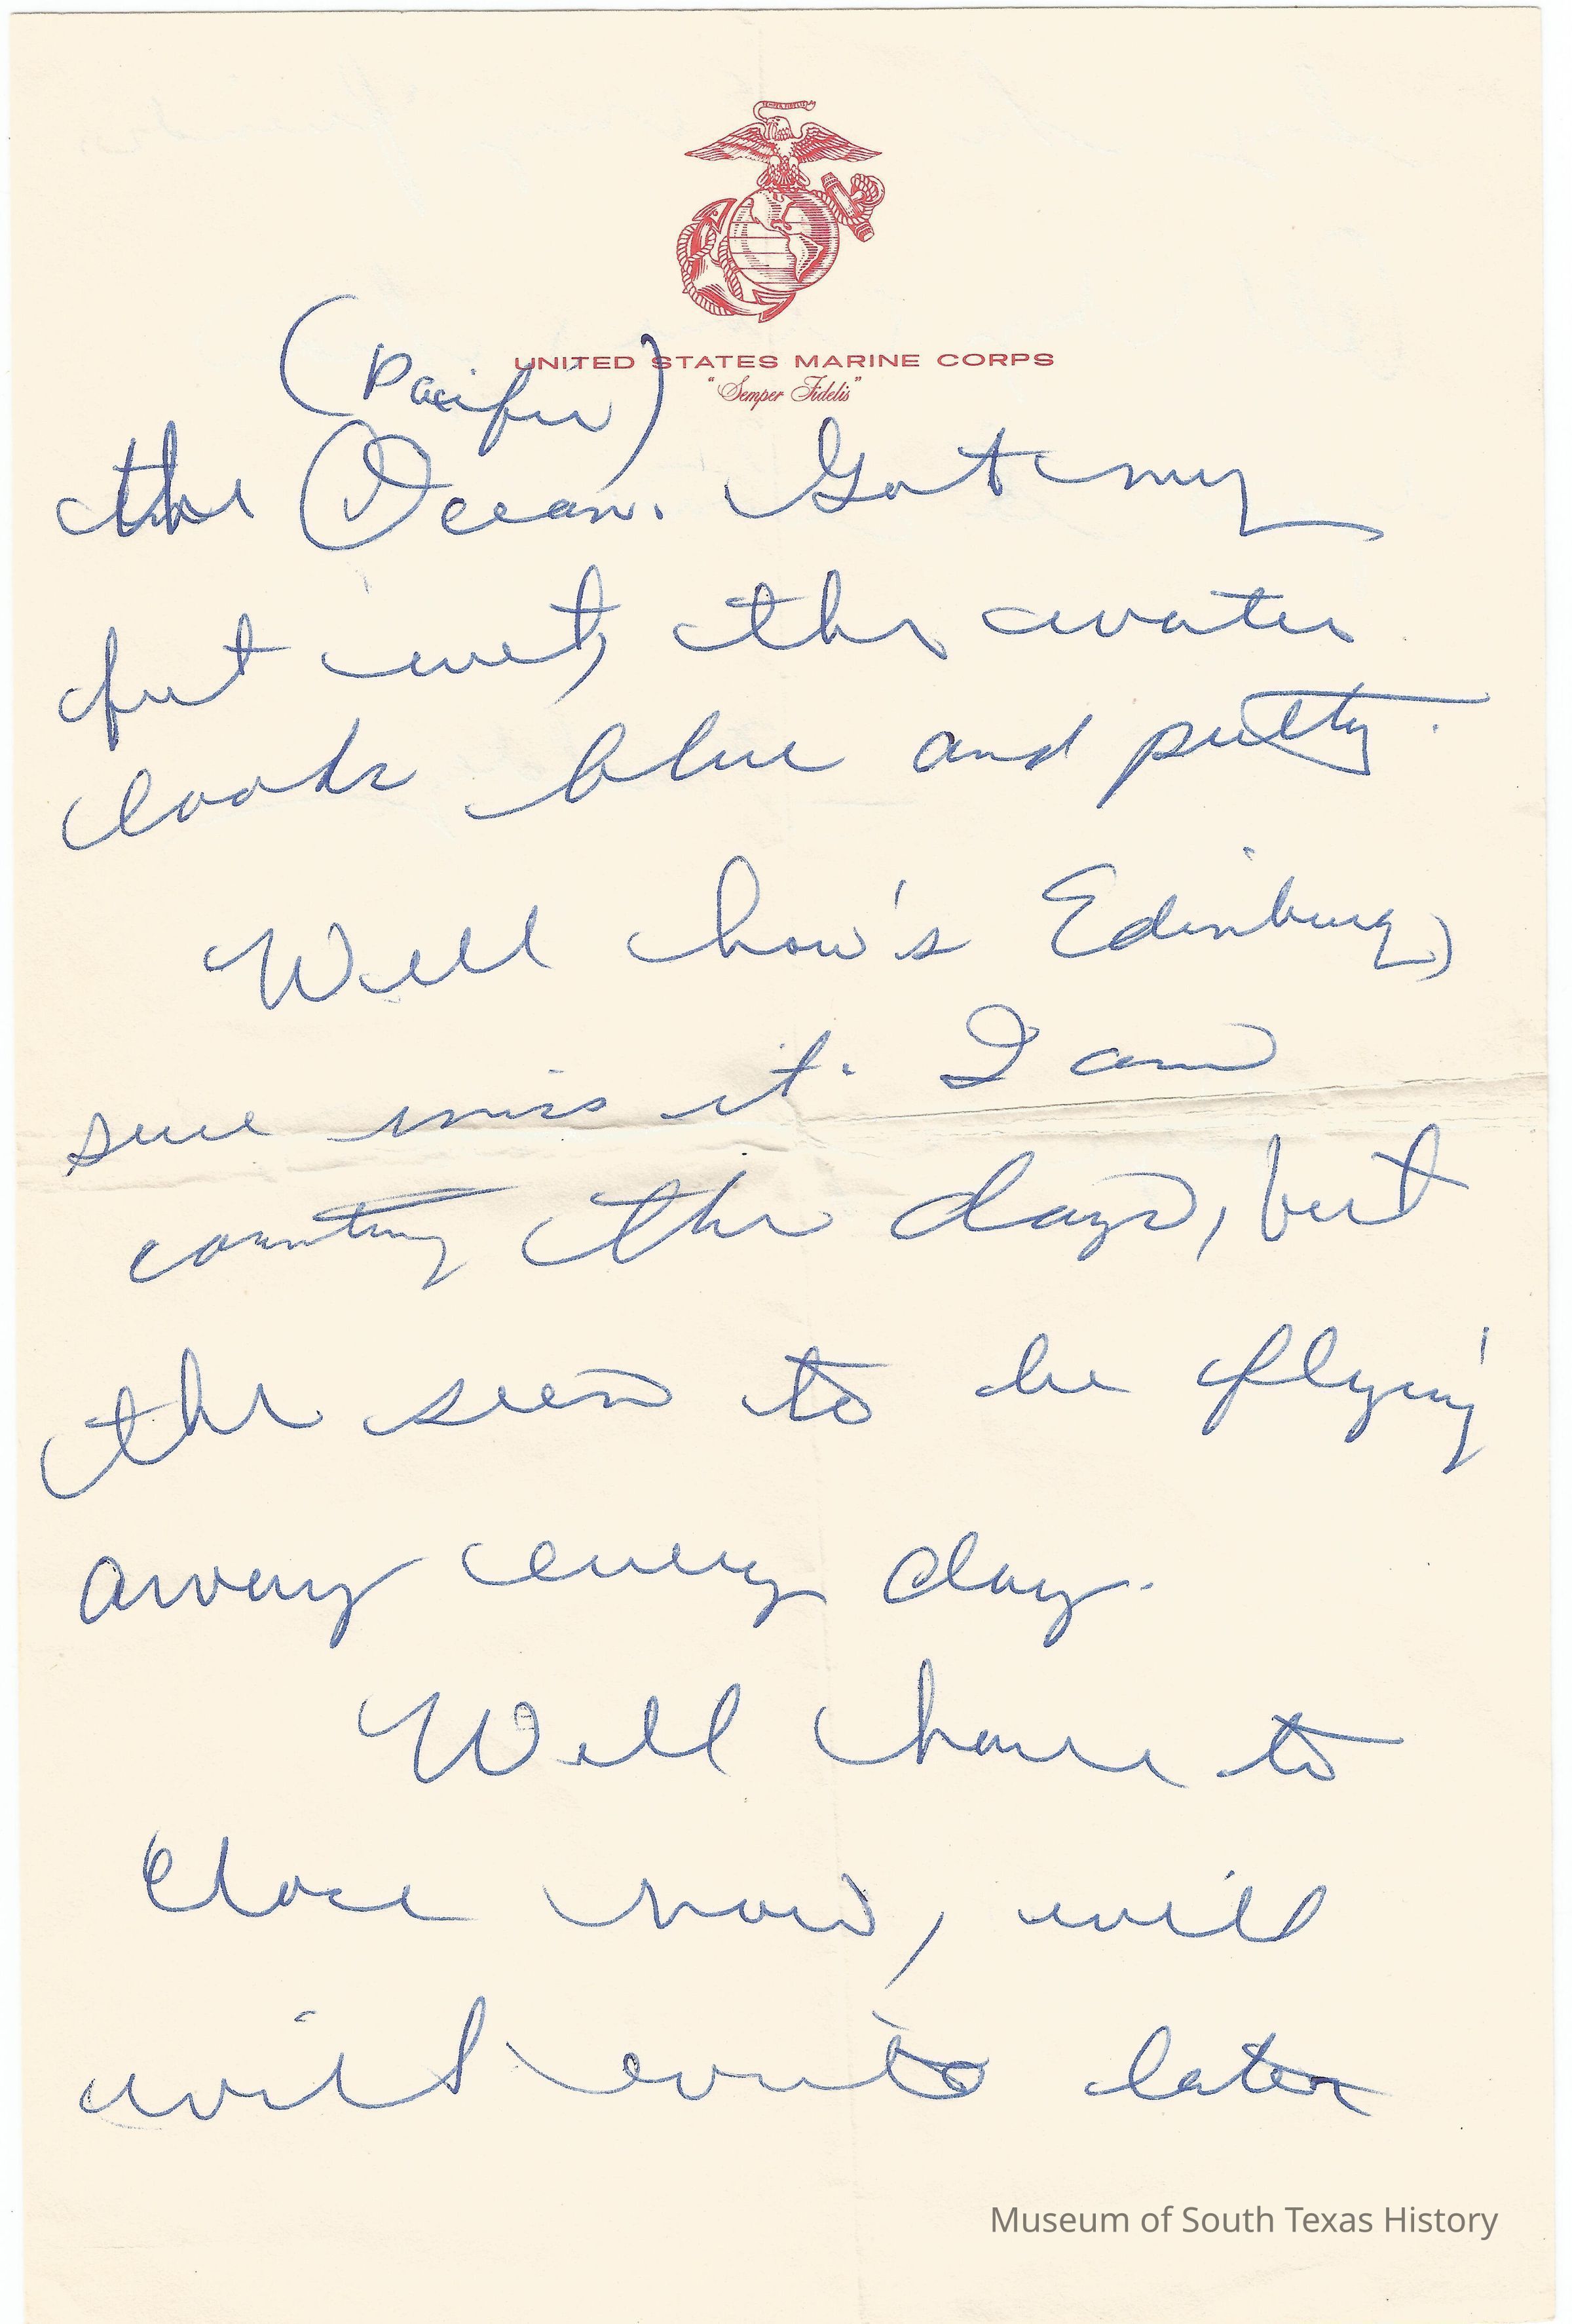 UNITED STATES MARINE CORPS
"Semper Fidelis"
(Pacific)
the Ocean. Got my
feet wet, the water
looks blue and pretty.
Well how's Edinburg,
sure miss it. I am
counting the days, but
the seem to be flying
away every day.
Well have to
Close now, will
will write later
Museum of South Texas History